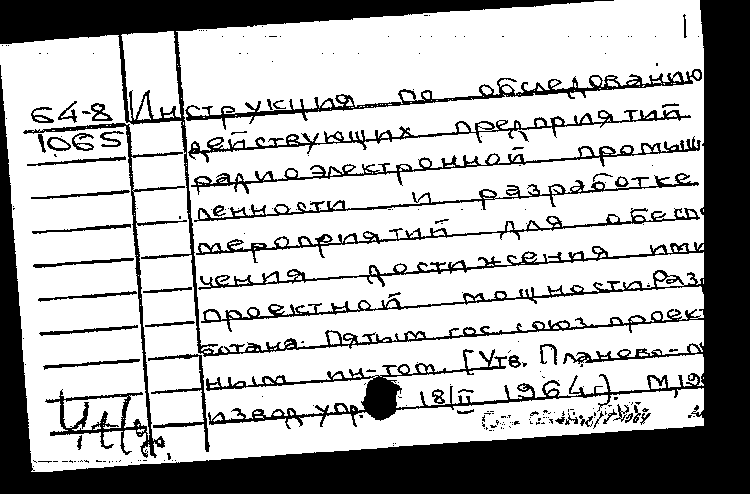 64-8 Инструкция по обследованию
1065 действующих предприятий
радиоэлектронной промыш-
ленности и разработке
мероприятий для обеспе
чения достижения ими
проектной мощности. Разр
ботана: Пятым гос. союз. проект
ным ин-том. [Утв. Планово-пр
извод. упр. 18/II 1964г.]. М, 196